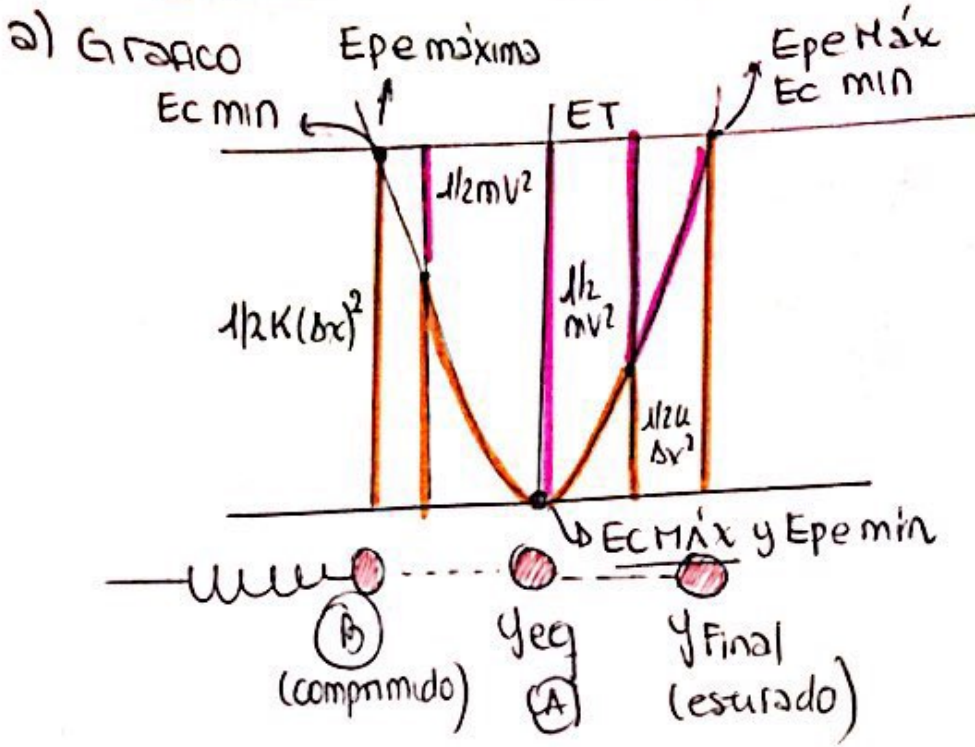 a) Grafico
Epe máxima
Ec min
Epe Máx
Ec min
ET
1/2mv²
1/2K(Δx)²
1/2
mv²
1/2K
Δx²
Ec MÁX y Epe min
B
(comprimido)
yeq
A
y Final
(estirado)